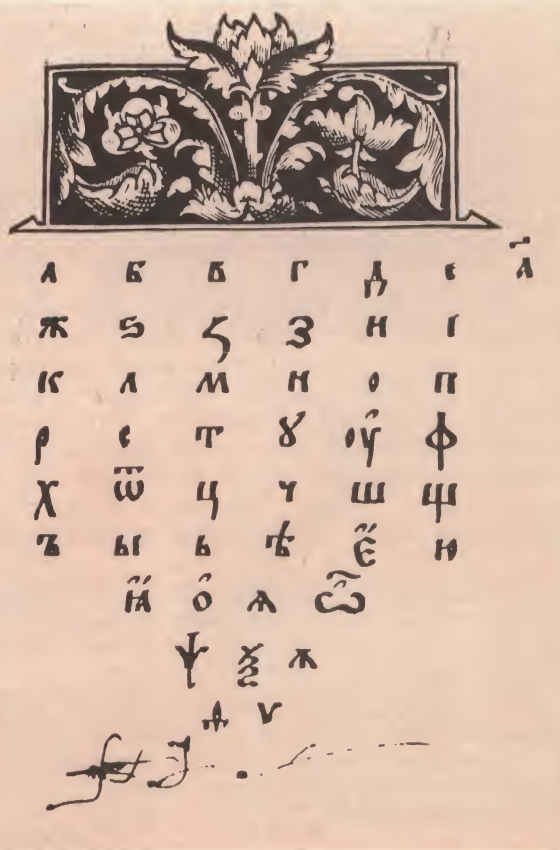 а҃
а б в г д е
ж ѕ ꙁ з и і
к л м н о п
р с т ꙋ оу҆ ф
х ѿ ц ч ш щ
ъ ы ь ѣ є҆ ю
ꙗ҆ о҆ ѧ ѽ
ѱ ѯ ѫ
ѳ ѵ